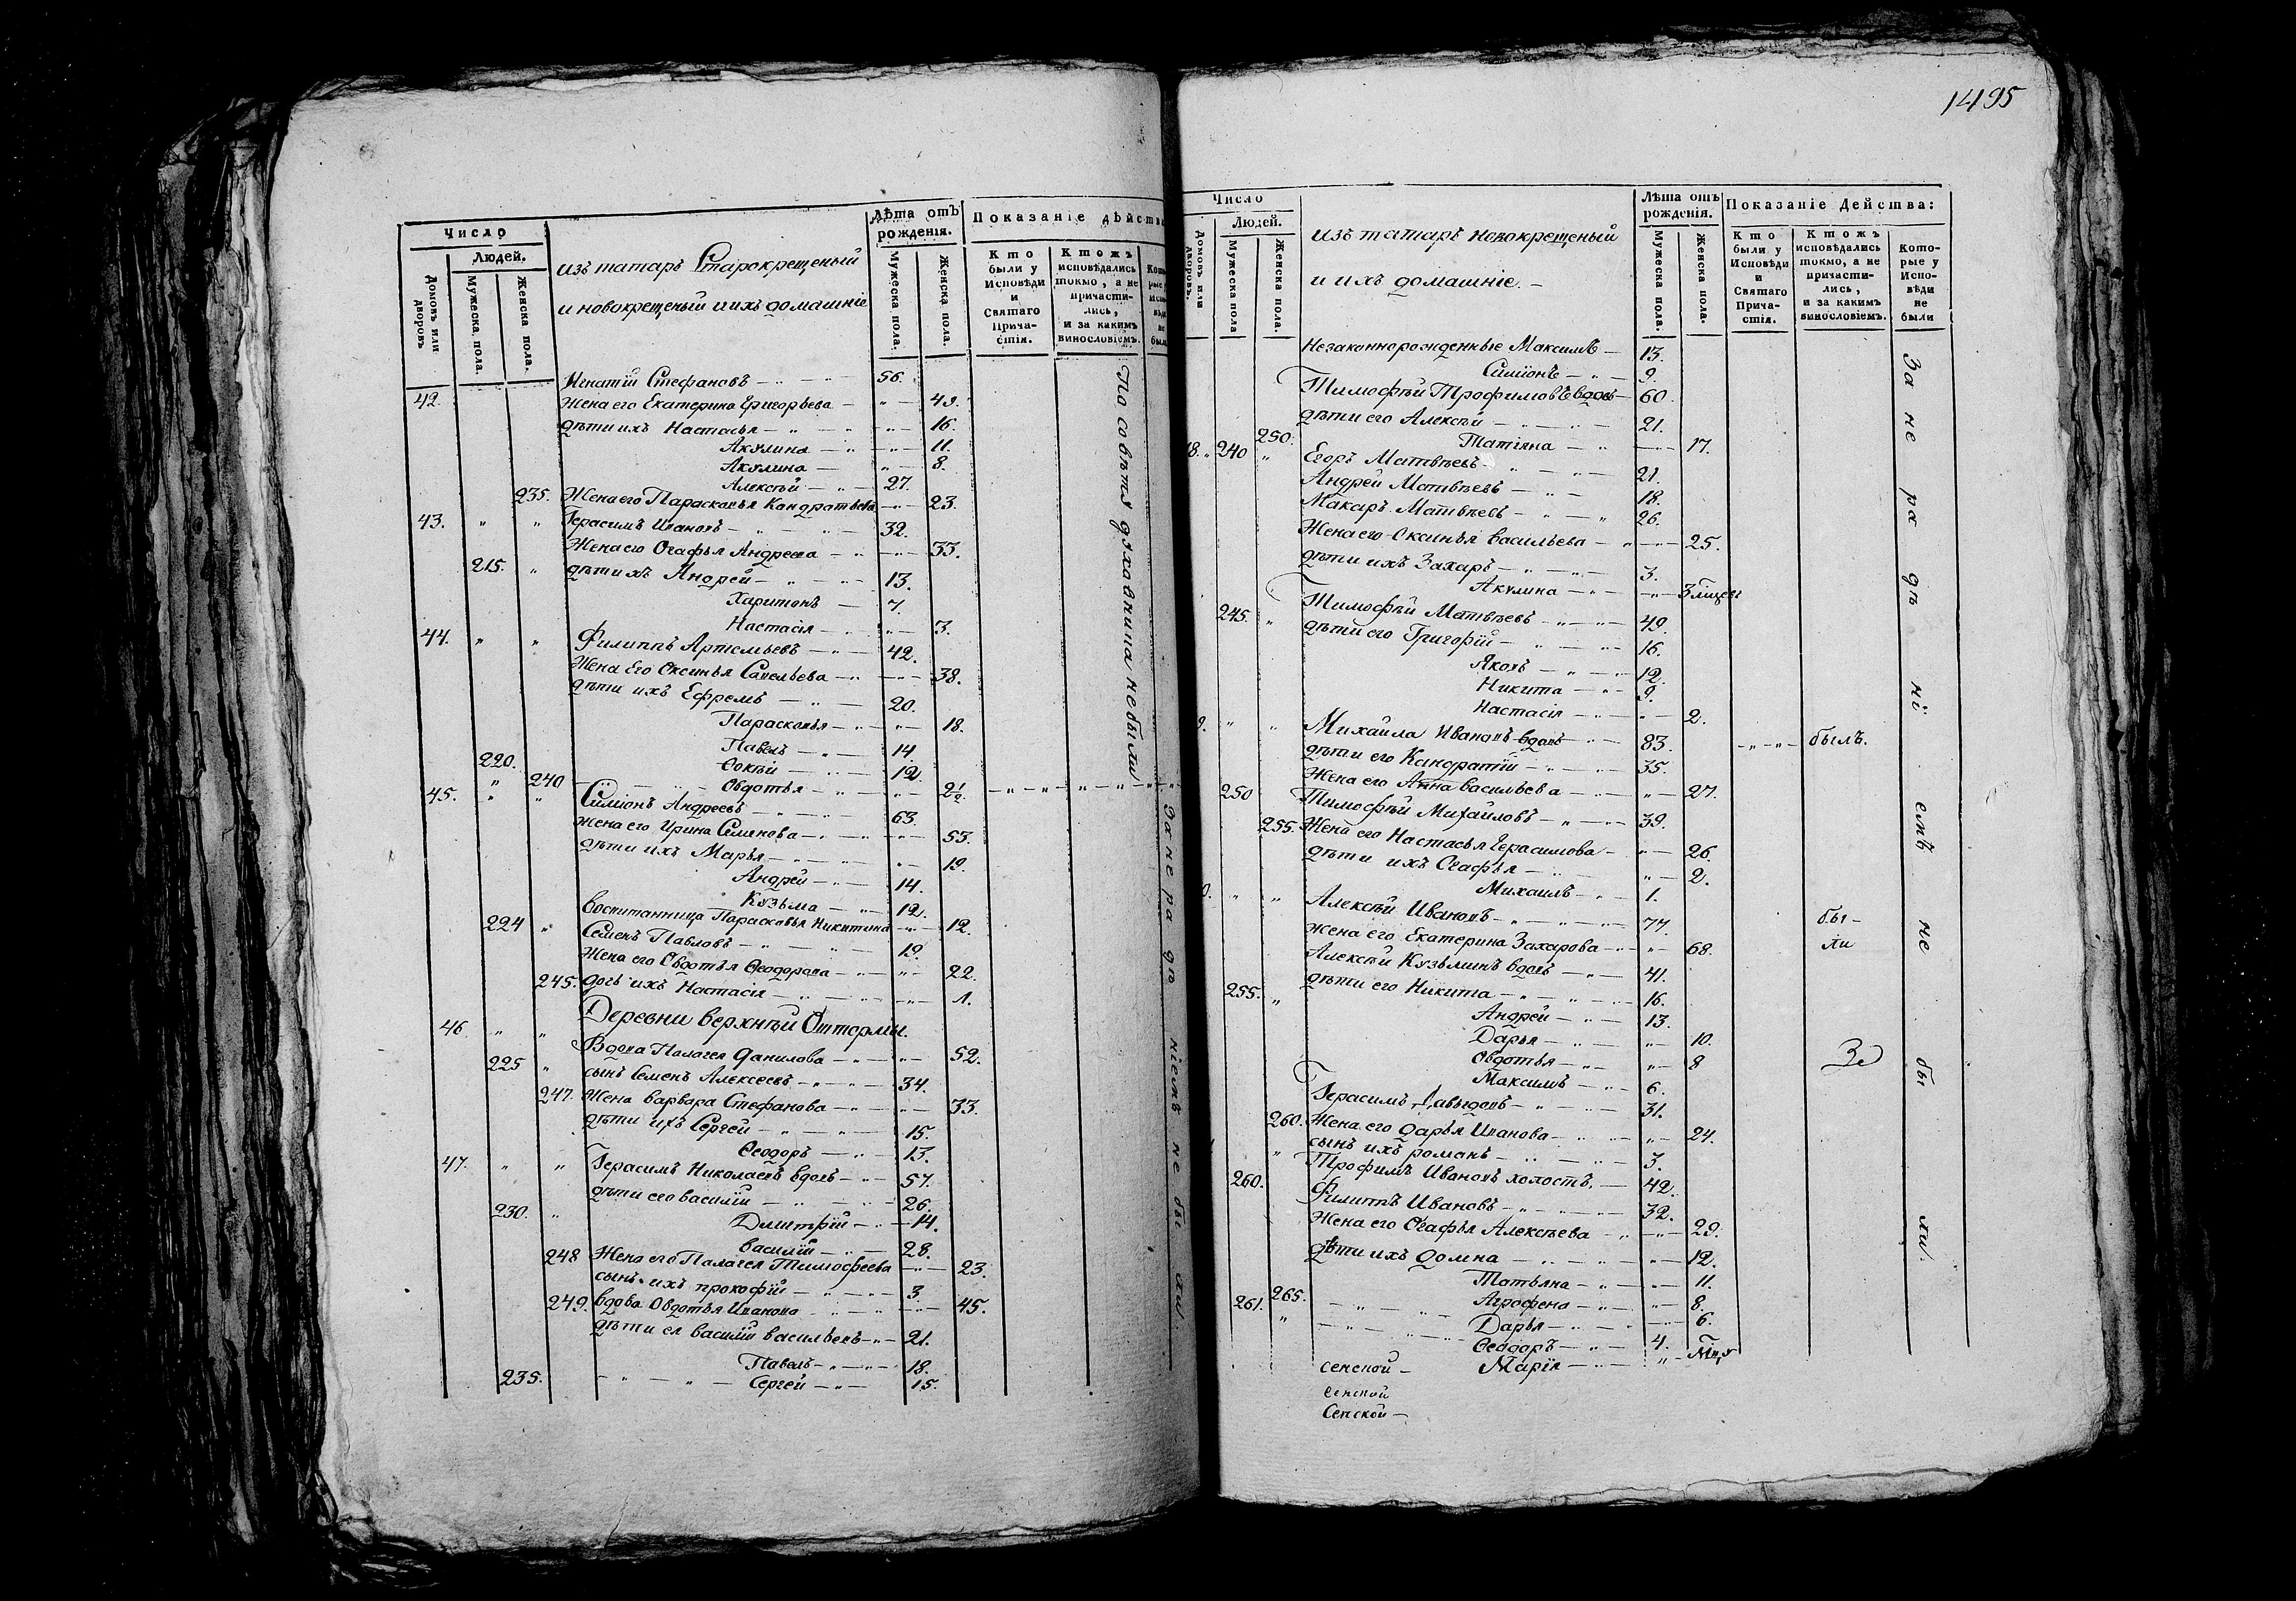 1495
Число
Людей.
Домовъ или дворовъ
Мужеска пола.
Женска пола.
изъ татаръ Старокрещеный
и новокрещеный и ихъ домашніе
Лѣта отъ рожденія.
Мужеска пола.
Женска пола.
Показаніе дѣйств
Кто были у Исповѣди и Святаго Причастія.
Ктожъ исповѣдались токмо, а не причастились, и за какимъ винословіемъ.
42. Игнатій Стефановъ 56.
Жена его Екатерина Григорьева 49.
дѣти ихъ Настасья 16.
Акулина 11.
Акулина 8.
Алексѣй 27.
235. Жена его Парасковья Кондратьева 23.
43. Герасимъ Ивановъ 32.
Жена его Огафья Андреева 33.
215. дѣти ихъ Андрей 13.
Харитонъ 7.
Настасія 3.
44. Филиппъ Артемьевъ 42.
Жена Его Оксинья Савельева 38.
дѣти ихъ Ефремъ 20.
Парасковья 18.
Павелъ 14
220. Фокѣй 12
240 Овдотья 2½
45. Симіонъ Андреевъ 63.
жена его Ирина Семенова 53.
дѣти ихъ Марья 19.
Андрей 14.
Кузьма 12.
воспитанница Парасковья Никитина 12.
224 Семенъ Павловъ 19.
Жена его Овдотья Феодорова 22.
245. дочь ихъ Настасія 1.
Деревни верхнѣй Отторми.
46 Вдова Палагея Данилова 52.
225 сынъ Семенъ Алексеевъ 34.
247. Жена варвара Стефанова 33.
дѣти ихъ Сергей 15.
Феодоръ 13.
47. Герасимъ Николаевъ вдовъ 57.
дѣти его василій 26.
230. Димитрій 14.
василій 28.
248 Жена его Палагея Тимофеева 23.
сынъ ихъ прокофій 3
249. вдова Овдотья Иванова 45.
дѣти ея василій васильевъ 21.
Павелъ 18.
235. Сергей 15.
По совѣту духовника небыли
За не ра дѣ ніемъ не бы ли
Число
Людей.
Домовъ или дворовъ.
Мужеска пола
Женска пола.
изъ татаръ новокрещеный
и ихъ домашніе.
Лѣта отъ рожденія.
Мужеска пола.
Женска пола.
Показаніе Действа:
Кто были у Исповѣди и Святаго Причастія.
Ктожъ исповѣдались токмо, а не причастились, и за какимъ винословіемъ.
Которые у Исповѣди не были
Незаконнорожденные Максимъ 13.
Симіонъ 9.
Тимофѣй Трофимовъ вдовъ 60.
дѣти его Алексѣй 21.
250. Татіяна 17.
8. 240 Егоръ Матвѣевъ 21.
Андрей Матвѣевъ 18.
Макаръ Матвѣевъ 26.
Жена его Оксинья васильева 25.
дѣти ихъ Захаръ 3.
Акулина 3
245. Тимофѣй Матвѣевъ 49.
дѣти его Григорій 16.
Яковъ 12.
Никита 9.
Настасія 2.
9. Михаила Ивановъ вдовъ 83. былъ.
дѣти его Кандратій 35.
Жена его Анна васильева 27.
250 Тимофѣй Михайловъ 39.
255. Жена его Настасья Герасимова 26.
дѣти ихъ Огафья 2.
Михаилъ 1.
0. Алексѣй Ивановъ 77. бы-
жена его Екатерина Захарова 68. ли
Алексѣй Кузьминъ вдовъ 41.
255. дѣти его Никита 16.
Андрей 13.
Дарья 10.
Овдотья 8
Максимъ 6.
Герасимъ Давыдовъ 31.
260. Жена его Дарья Иванова 24.
сынъ ихъ романъ 3.
Трофимъ Ивановъ холостъ. 42.
260. Филиппъ Ивановъ 32.
Жена его Огафья Алексѣева 29.
дѣти ихъ Домна 12.
Татьяна 11.
265. Аграфена 8.
261. Дарья 6.
Феодоръ 4.
Марія
За не ра дѣ ні емъ не бы ли.